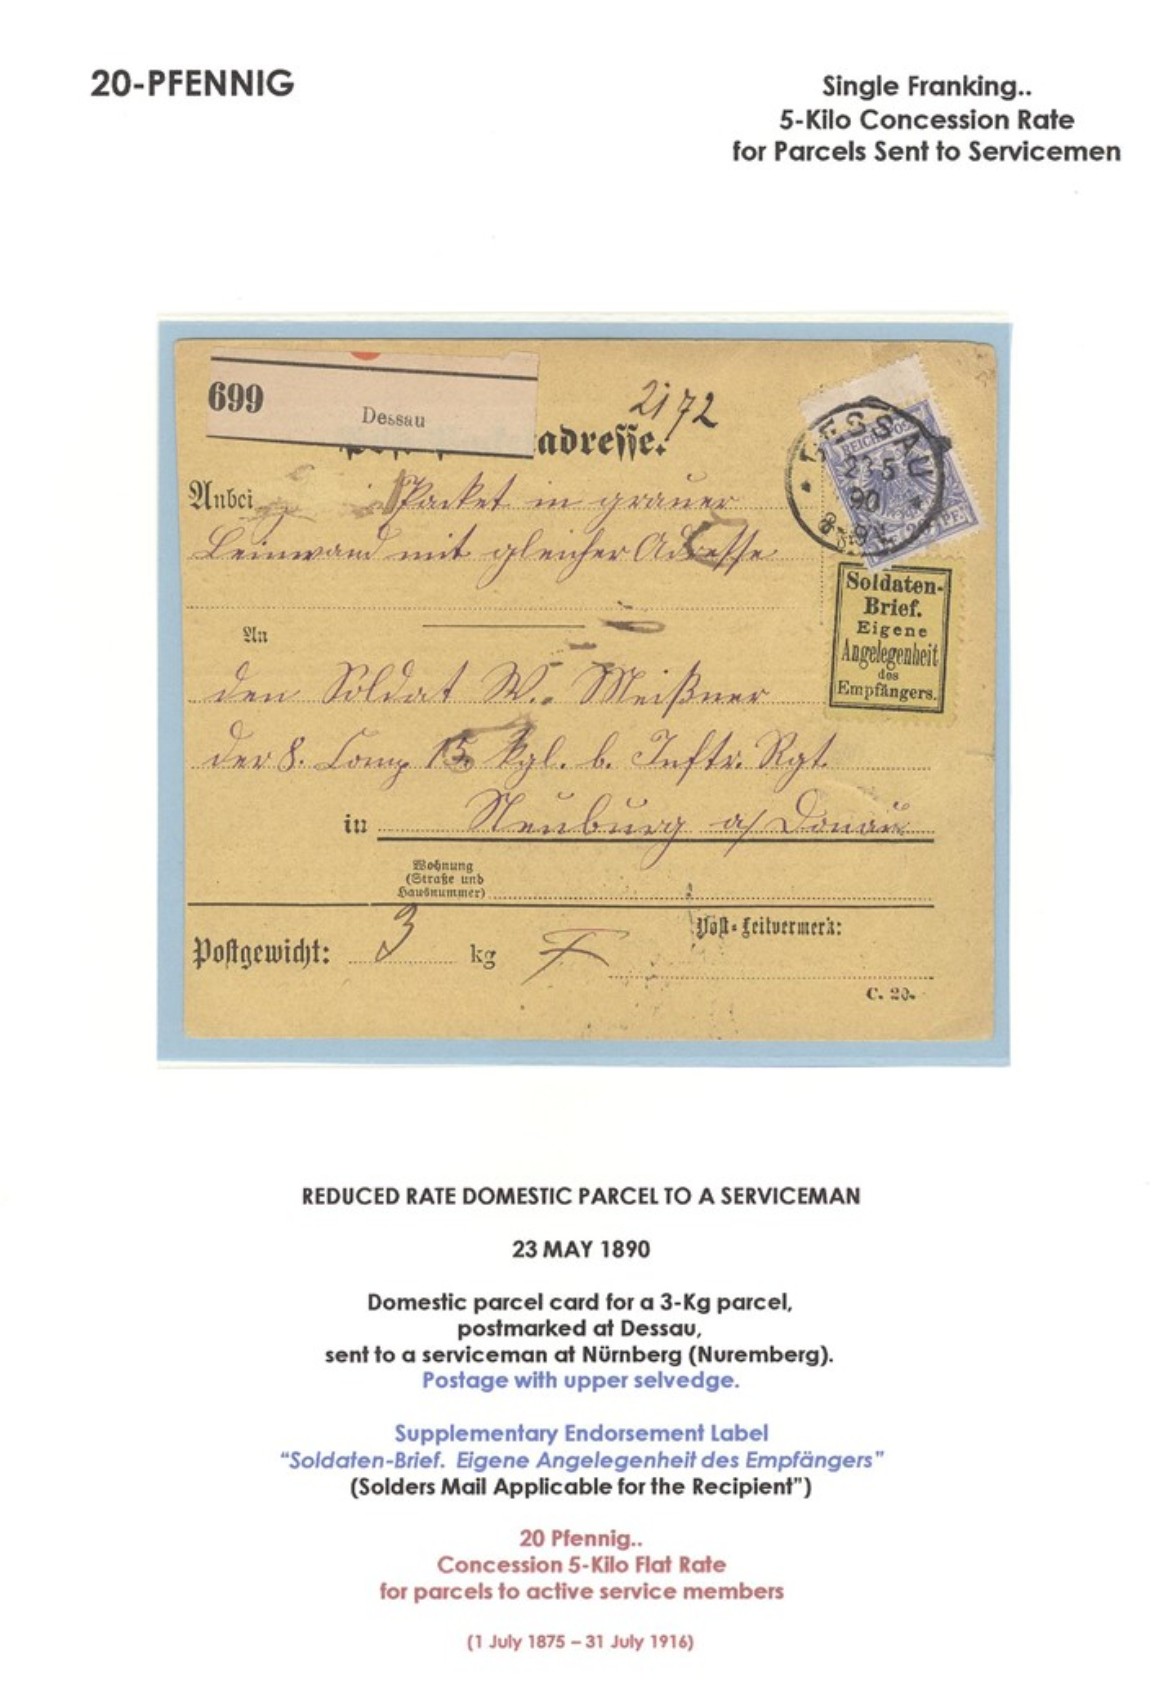 20-PFENNIG
Single Franking..
5-Kilo Concession Rate
for Parcels Sent to Servicemen
699
Dessau
2172
adresse.
DESSAU
REICHSPOST
23 5
90
8-9V.
20 PF.
Anbei Packet in grauer
Leinwand mit gleicher Adresse
Soldaten-
Brief.
Eigene
Angelegenheit
des
Empfängers.
An
den Soldat W. Meißner
der 8. Comp 15. Kgl. b. Inftr. Rgt.
in Neuburg a/ Donau
Wohnung
(Straße und
Hausnummer)
Postgewicht: 3 kg
Post-Leitvermerk:
C. 20.
REDUCED RATE DOMESTIC PARCEL TO A SERVICEMAN
23 MAY 1890
Domestic parcel card for a 3-Kg parcel,
postmarked at Dessau,
sent to a serviceman at Nürnberg (Nuremberg).
Postage with upper selvedge.
Supplementary Endorsement Label
“Soldaten-Brief. Eigene Angelegenheit des Empfängers”
(Solders Mail Applicable for the Recipient”)
20 Pfennig..
Concession 5-Kilo Flat Rate
for parcels to active service members
(1 July 1875 – 31 July 1916)